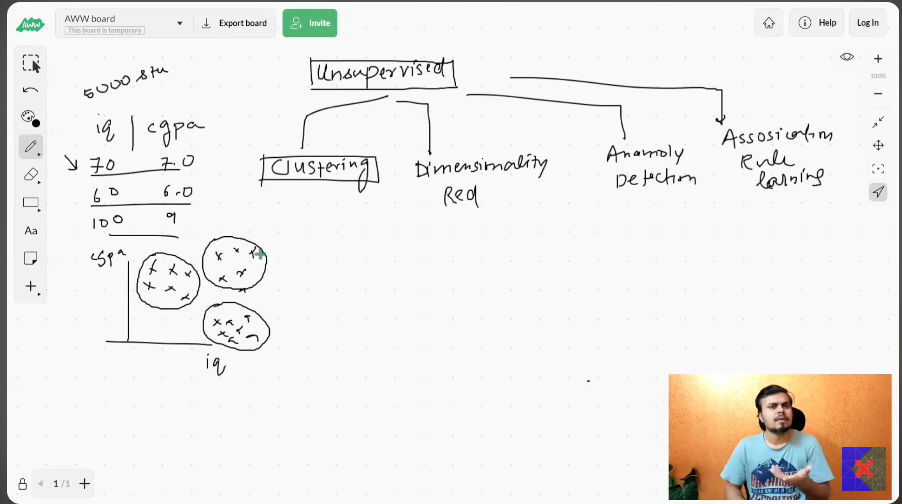 AWW
AWW board
This board is temporary
Export board
Invite
Help
Log In
100%
Aa
1 /1
5000 stu
iq | cgpa
70 7.0
60 6.0
100 9
cgpa
iq
Unsupervised
Clustering
Dimensionality
Red
Anamoly
Detection
Assosication
Rule
larning